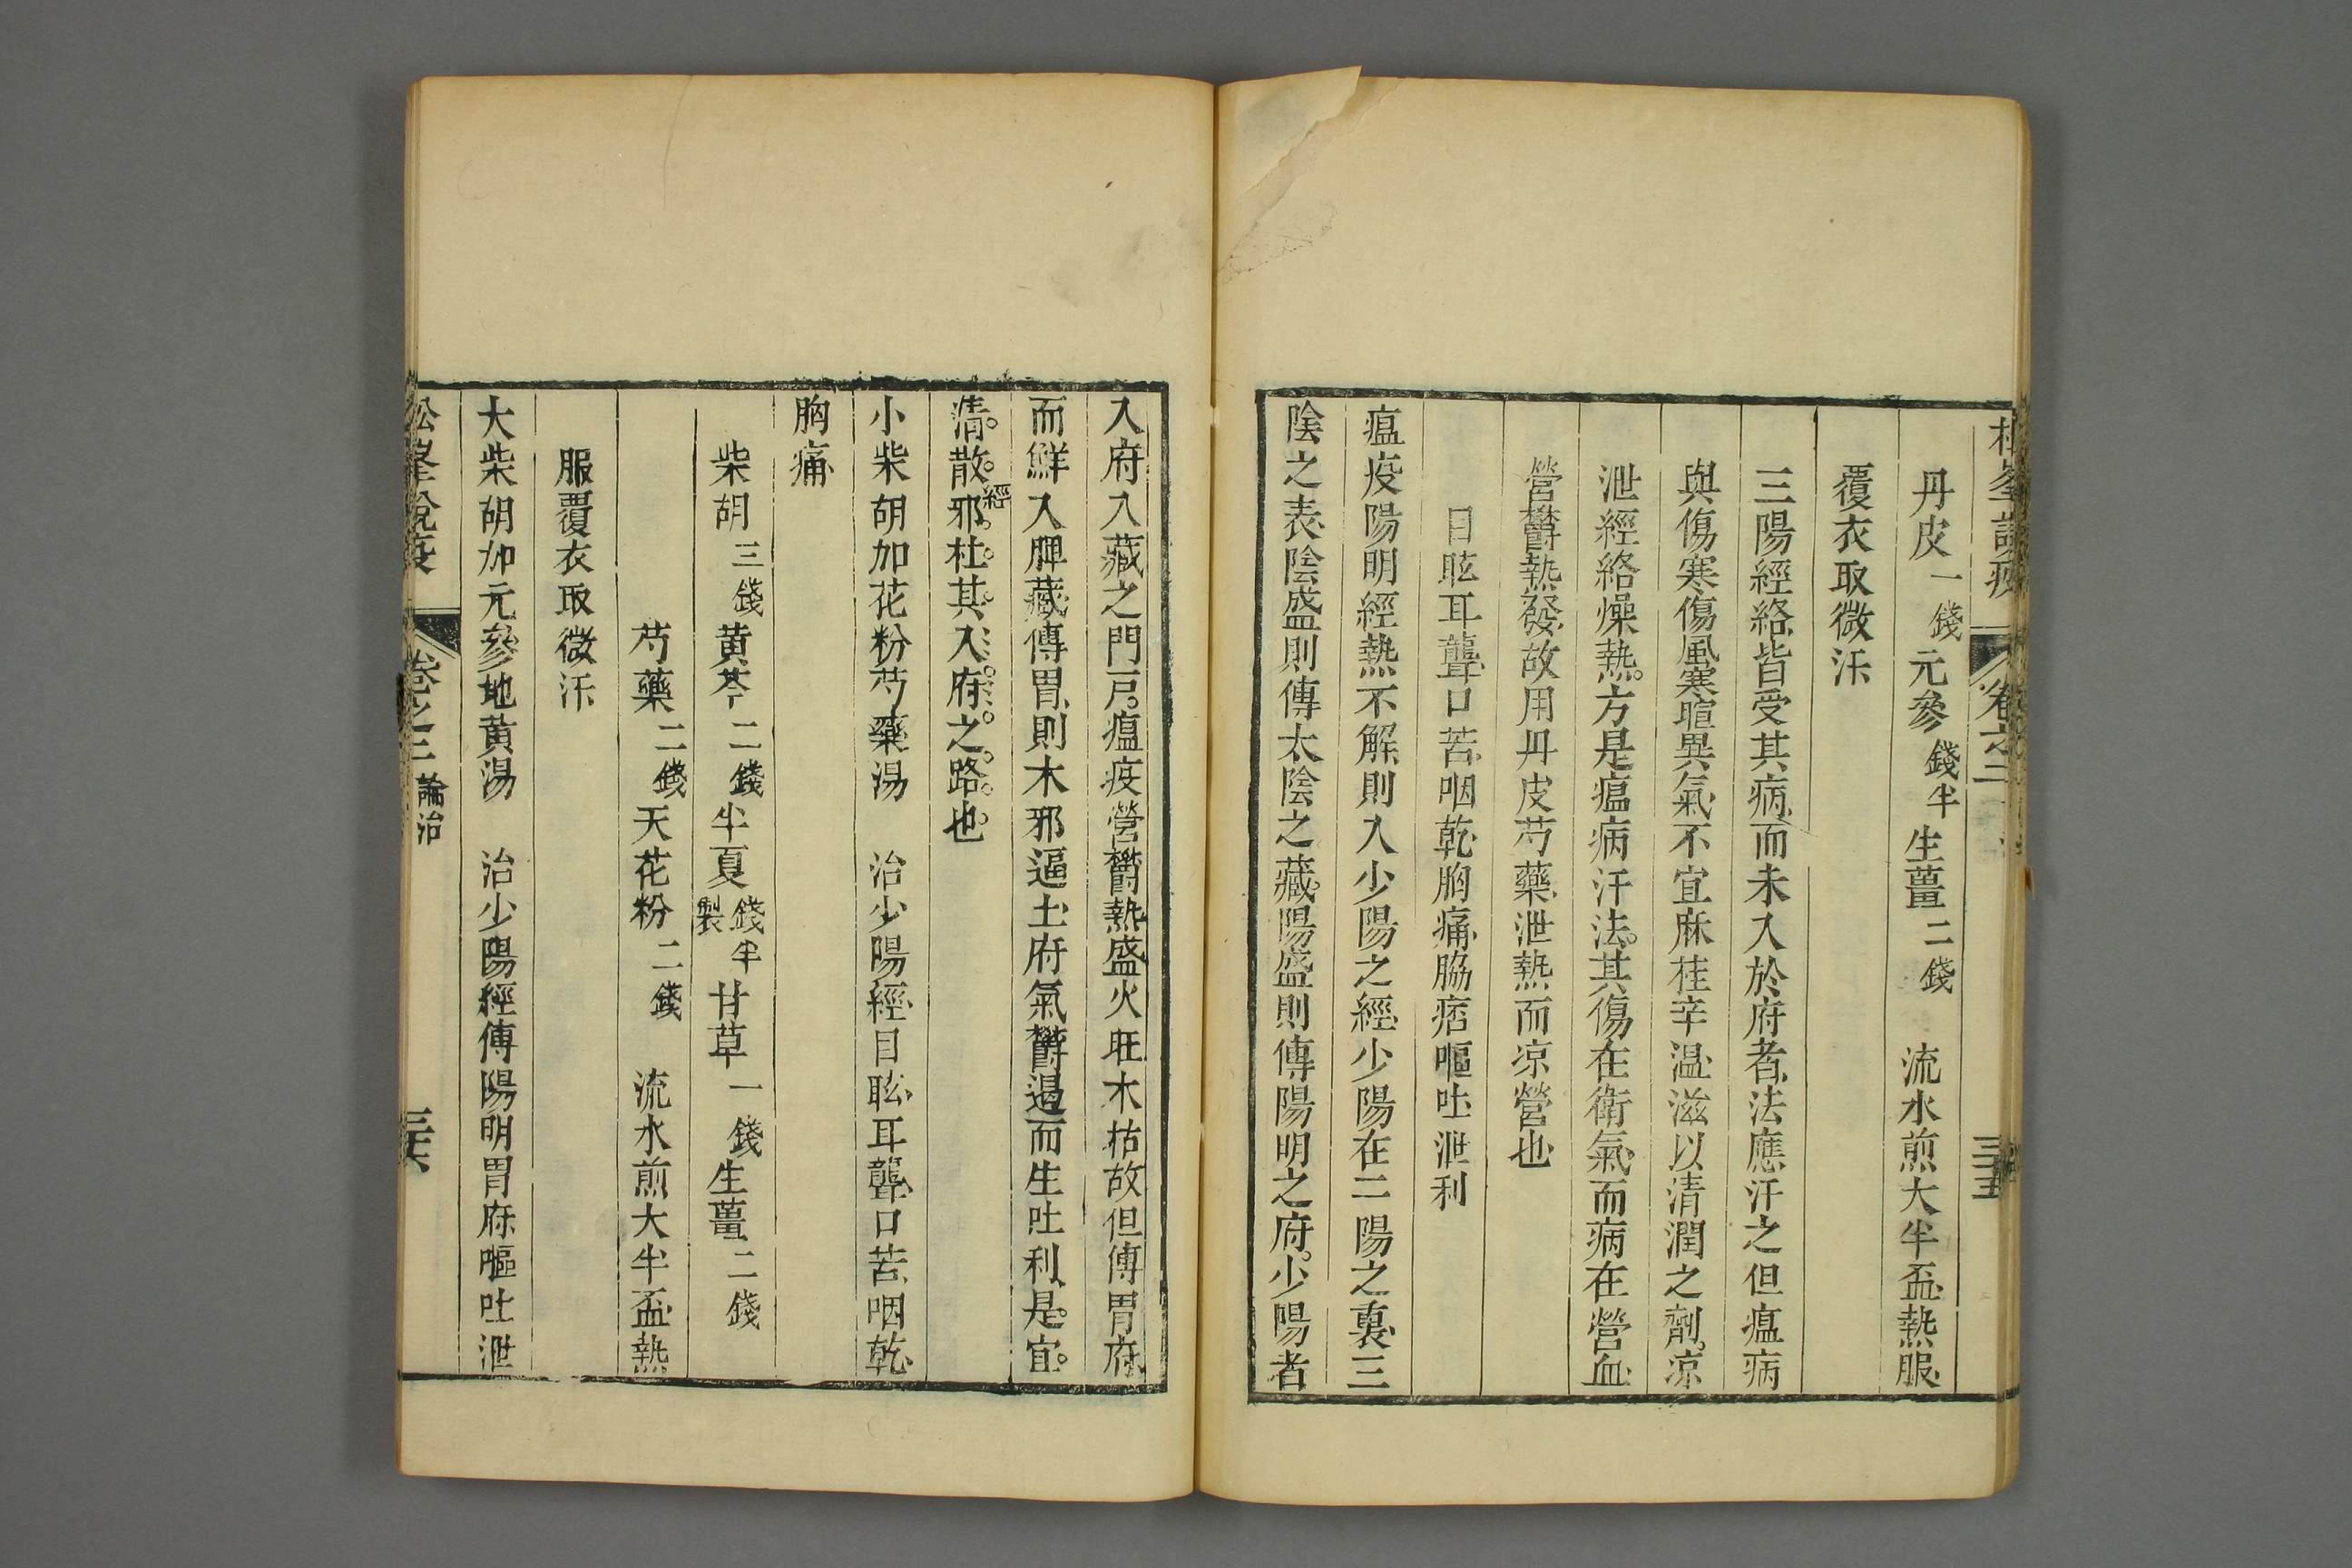 松峯說疫
卷之二
三十五
丹皮一錢元參錢半生薑二錢　流水煎大半盃熱服
覆衣取微汗
三陽經絡皆受其病而未入於府者法應汗之但瘟病
與傷寒傷風寒暄異氣不宜麻桂辛溫滋以清潤之劑凉
泄經絡燥熱方是瘟病汗法其傷在衛氣而病在營血
營欝熱發故用丹皮芍藥泄熱而凉營也
目眩耳聾口苦咽乾胸痛脇痞嘔吐泄利
瘟疫陽明經熱不解則入少陽之經少陽在二陽之裏三
陰之表陰盛則傳太陰之藏陽盛則傳陽明之府少陽者
入府入藏之門戶瘟疫營欝熱盛火旺木枯故但傳胃府
而鮮入脾藏傳胃則木邪逼土府氣欝遏而生吐利是宜
清散經邪杜其入府之路也
小柴胡加花粉芍藥湯　治少陽經目眩耳聾口苦咽乾
胸痛
柴胡三錢黃芩二錢半夏錢半製甘草一錢生薑二錢
芍藥二錢天花粉二錢　流水煎大半盃熱
服覆衣取微汗
大柴胡加元參地黃湯　治少陽經傳陽明胃府嘔吐泄
松峯說疫
卷之二論治
三十六